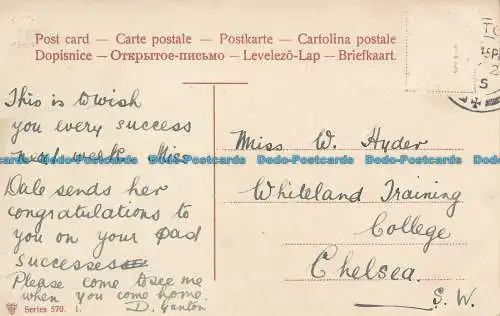 Post card — Carte postale — Postkarte — Cartolina postale
Dopisnice — Открытое-письмо — Levelező-Lap — Briefkaart.
This is to wish
you every success
next week. Miss
Dale sends her
congratulations to
you on your past
successes
Please come to see me
when you come home.
D. Ganton
Series 570. 1.
Miss W. Hyder
Whiteland Training
College
Chelsea.
S. W.
Dodo-Postcards Dodo-Postcards Dodo-Postcards Dodo-Postcards